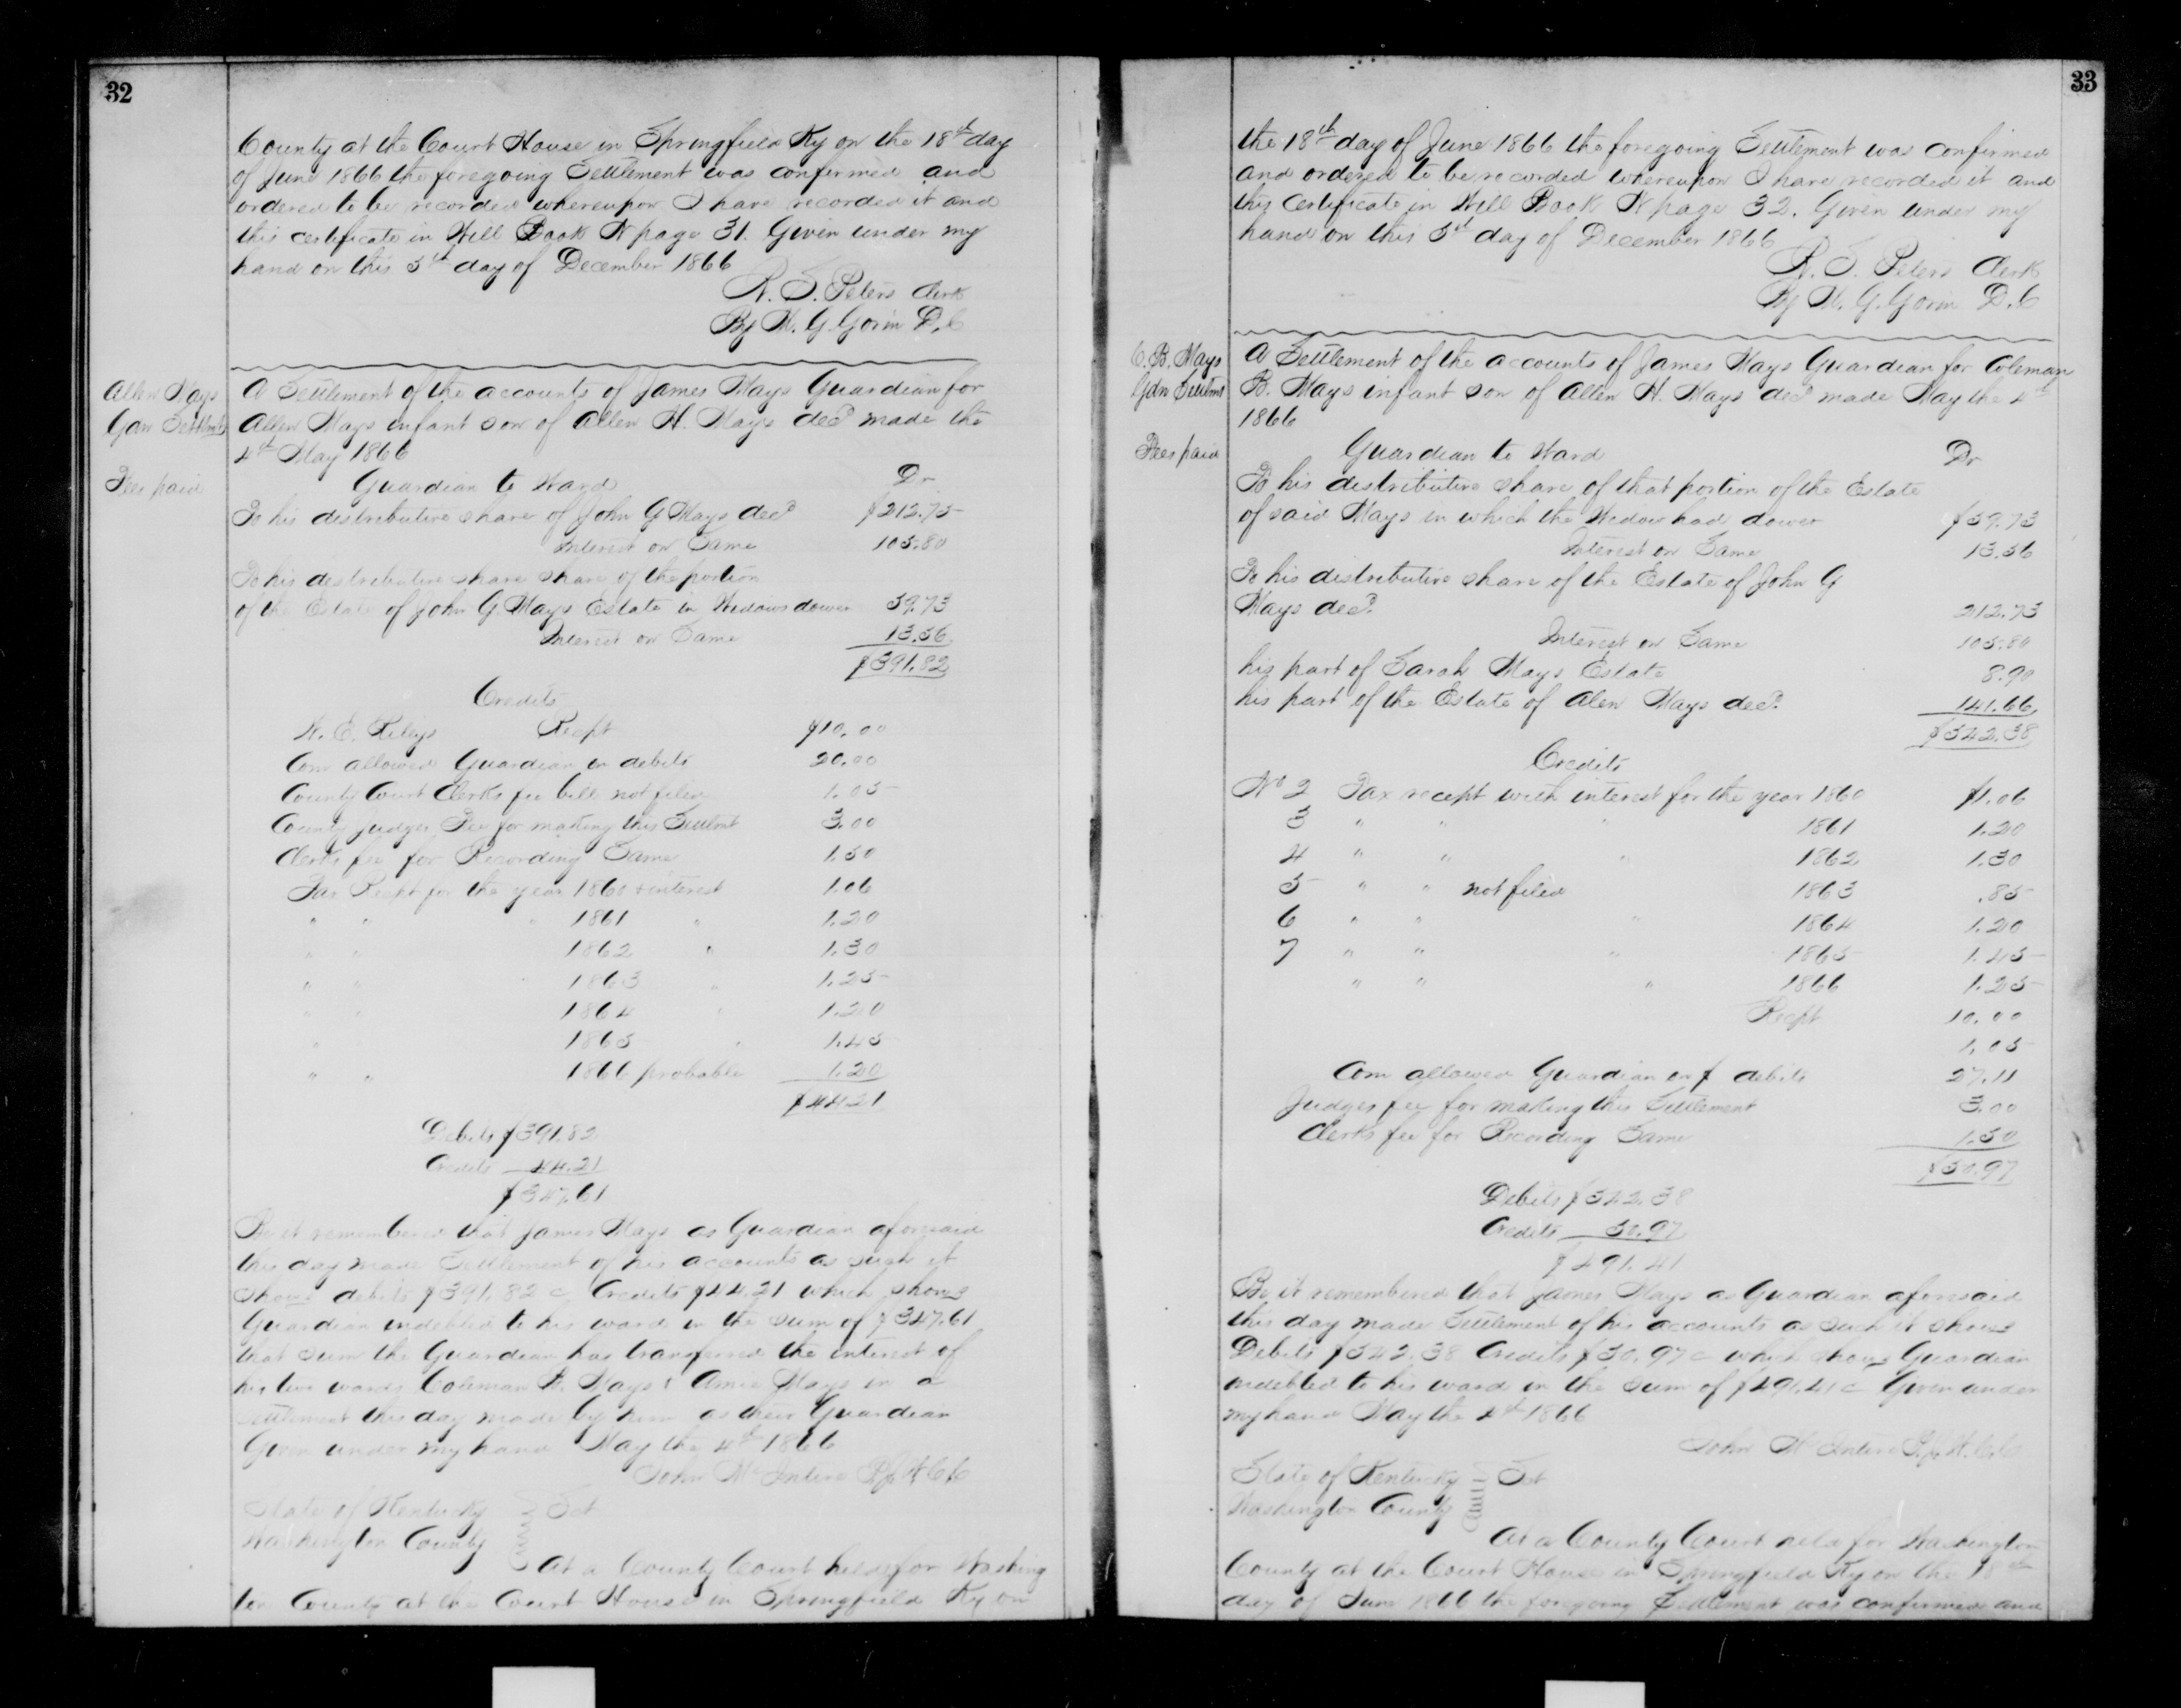 32
County at the Court House in Springfield Ky on the 18th day
of June 1866 the foregoing Settlement was confirmed and
ordered to be recorded whereupon I have recorded it and
this certificate in Will Book N page 31. Given under my
hand on this 5th day of December 1866
R. S. Peters Clerk
By W. G. Gorin D.C
Allen Mays
Gdn Settlmt
Fees paid
A Settlement of the accounts of James Mays Guardian for
Allen Mays infant son of Allen H. Mays decd made the
4th May 1866
Guardian to Ward Dr
To his distributive share of John G Mays decd $212.73
Interest on Same 105.80
To his distributive share share of the portion
of the Estate of John G. Mays Estate in Widows dower 59.73
Interest on Same 13.56
$391.82
Credits
W. E. Rileys Recpt $10.00
Com allowed Guardian on debits 20.00
County Court Clerks fee bill not filed 1.05
County Judges Fee for making this Settlmt 3.00
Clerks fee for Recording Same 1.50
Tax Recpt for the year 1860 & interest 1.06
" " " 1861 " 1.20
" " 1862 " 1.30
" " 1863 " 1.25
" " 1864 " 1.20
" 1865 " 1.45
" " 1866 probable 1.20
$44.21
Debits $391.82
Credits 44.21
$347.61
Be it remembered that James Mays as Guardian aforesaid
this day made Settlement of his accounts as such it
shows debits $391.82 c Credits $44.21 which shows
Guardian indebted to his ward in the sum of $347.61
that sum the Guardian has transfered the interest of
his two wards Coleman B. Mays & Amie Mays in a
settlement this day made by him as their Guardian
Given under my hand May the 4th 1866
John McIntire P.J.W.C.C
State of Kentucky Sct
Washington County
At a County Court held for Washing
ton County at the Court House in Springfield Ky on
33
the 18th day of June 1866 the foregoing Settlement was confirmed
and ordered to be recorded whereupon I have recorded it and
this certificate in Will Book N page 32. Given under my
hand on this 5th day of December 1866
R. S. Peters Clerk
By W. G. Gorin D.C
C. B. Mays
Gdn Settlmt
Fees paid
A Settlement of the accounts of James Mays Guardian for Coleman
B. Mays infant son of Allen H. Mays decd made May the 4th
1866
Guardian to Ward Dr
To his distributive share of that portion of the Estate
of said Mays in which the Widow had dower $59.73
Interest on Same 13.56
To his distributive share of the Estate of John G
Mays decd. 212.73
Interest on Same 105.80
his part of Sarah Mays Estate 8.90
his part of the Estate of Alen Mays decd. 141.66
$542.38
Credits
No 2 Tax recept with interest for the year 1860 $1.06
3 " " " 1861 1.20
4 " " " 1862 1.30
5 " " not filed 1863 .85
6 " " " 1864 1.20
7 " " " 1865 1.45
" " " 1866 1.25
Recpt 10.00
1.05
Com allowed Guardian on $ debits 27.11
Judges fee for making this Settlement 3.00
Clerks fee for Recording Same 1.50
$50.97
Debits $542.38
Credits 50.97
$491.41
Be it remembered that James Mays as Guardian aforesaid
this day made Settlement of his accounts as such it shows
Debits $542.38 Credits $50.97 c which shows Guardian
indebted to his ward in the sum of $491.41 c Given under
my hand May the 4th 1866
John McIntire P.J.W.C.C
State of Kentucky Sct
Washington County
At a County Court held for Washington
County at the Court House in Springfield Ky on the 18th
day of June 1866 the foregoing Settlement was confirmed and